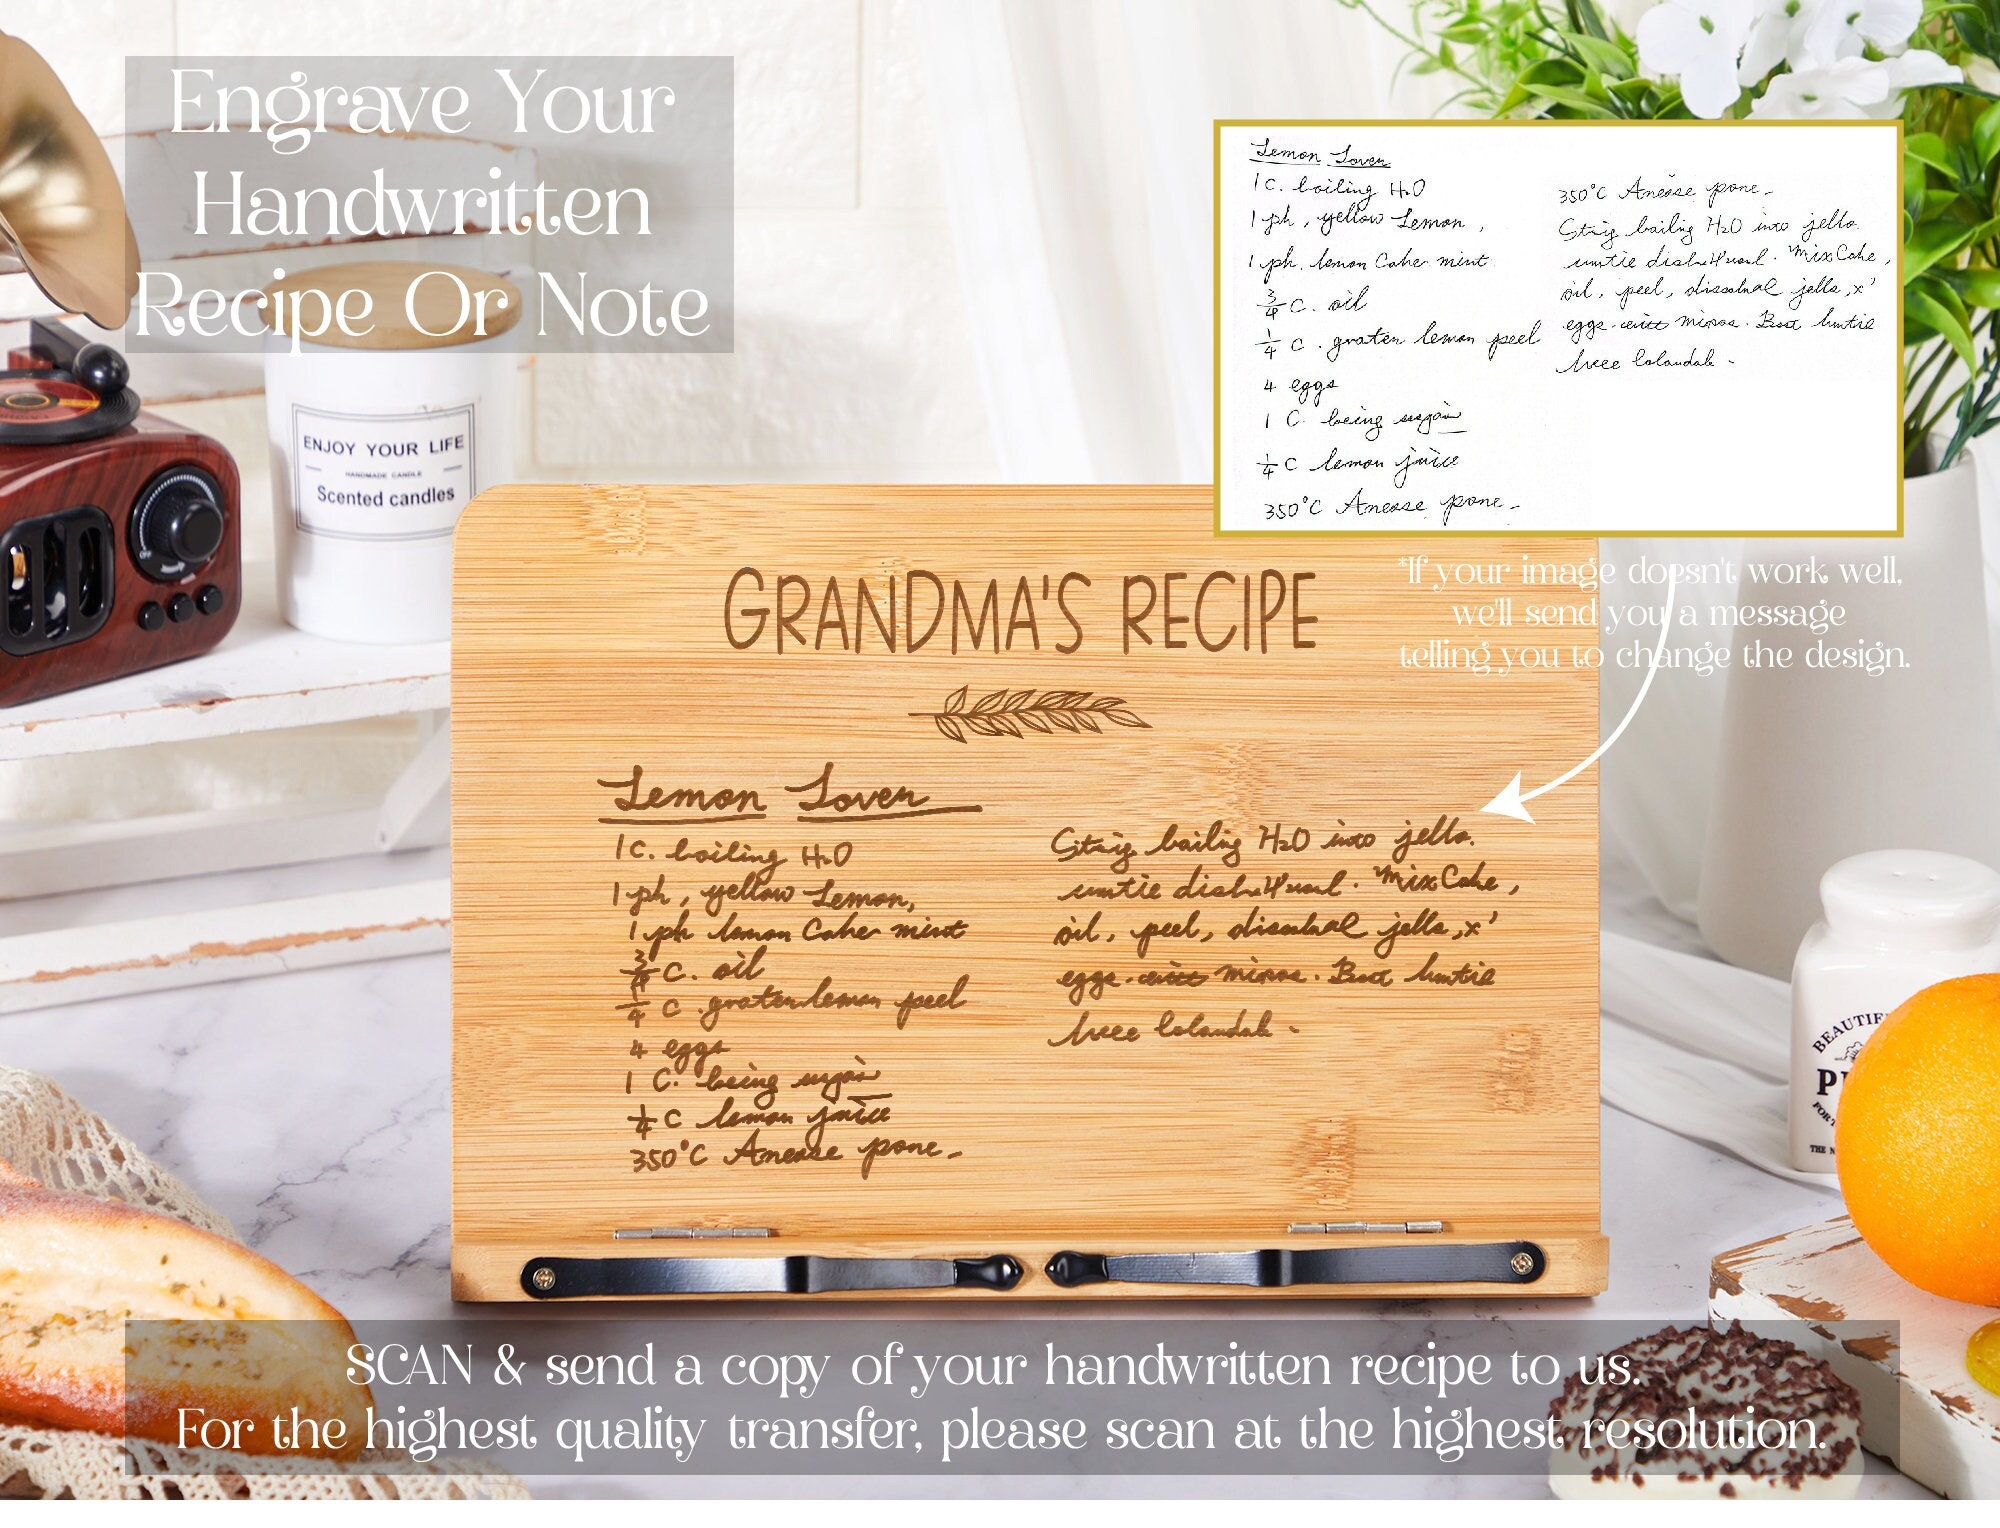 Engrave Your
Handwritten
Recipe Or Note
ENJOY YOUR LIFE
HANDMADE CANDLE
Scented candles
Lemon Lover
1 C. boiling H2O
1 ph, yellow Lemon,
1 ph. lemon Cake mint
3/4 C. oil
1/4 C. graten lemon peel
4 eggs
1 C. being sugar
1/4 C lemon juice
350°C Anease pone -
350°C Anease pone -
boiling H2O into jello.
Mix Cake,
oil, peel, jello, x'
eggs
*If your image doesn't work well,
we'll send you a message
telling you to change the design.
GRANDMA'S RECIPE
Lemon Lover
1 C. boiling H2O
1 ph, yellow Lemon,
1 ph lemon Cake mint
3/4 C. oil
1/4 C graten lemon peel
4 eggs
1 C. being sugar
1/4 C lemon juice
350°C Anease pone -
boiling H2O into jello.
Mix Cake,
oil, peel, jello, x'
eggs
BEAUTIF
P
FOR
THE N
SCAN & send a copy of your handwritten recipe to us.
For the highest quality transfer, please scan at the highest resolution.